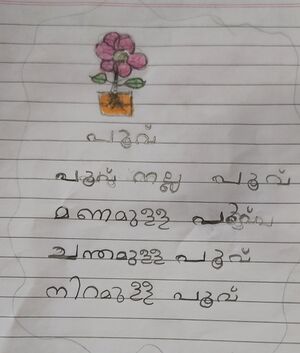 പൂവ്
പൂവ് നല്ല പൂവ്
മണമുള്ള പൂവ്
ചന്തമുള്ള പൂവ്
നിറമുള്ള പൂവ്